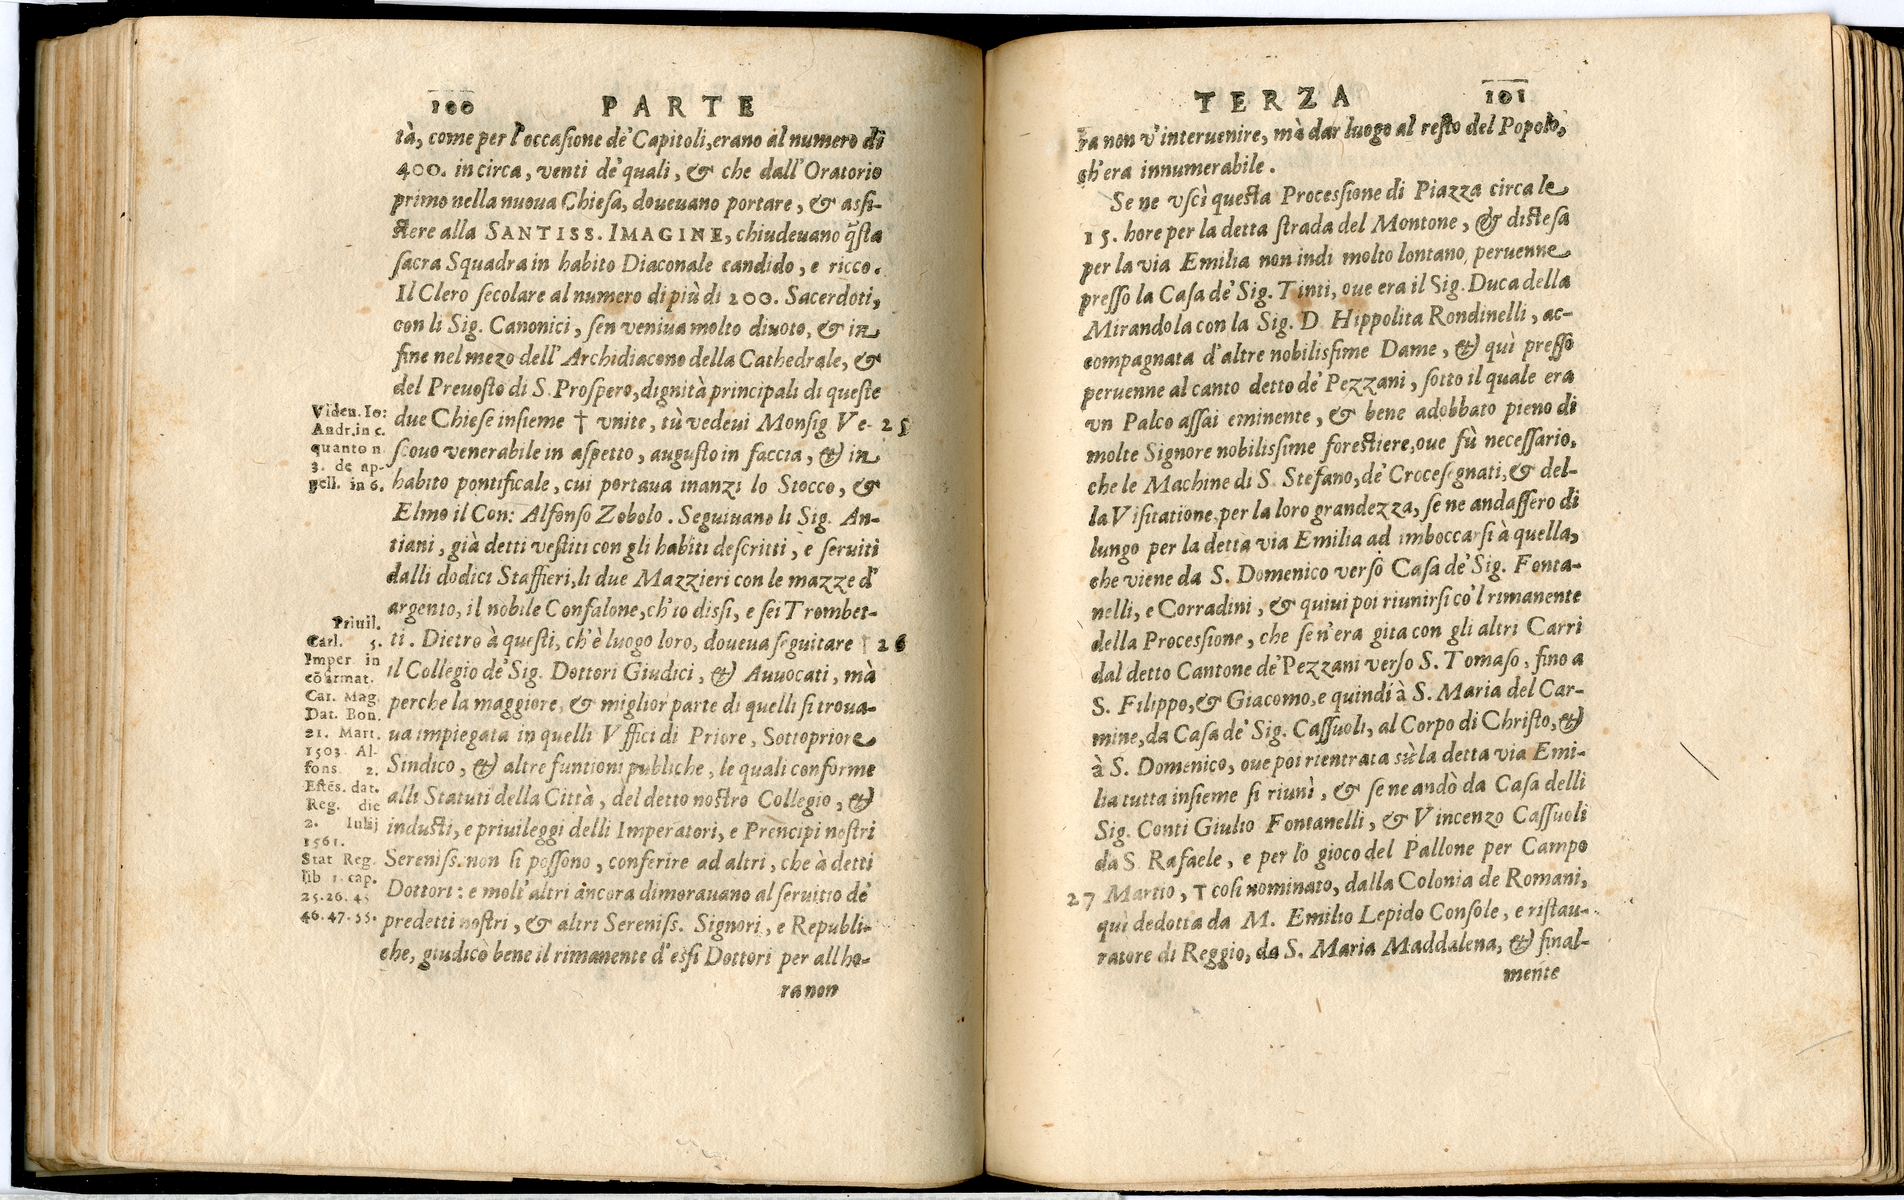 100 PARTE
tà, come per l'occasione de' Capitoli, erano al numero di
400. in circa, venti de' quali, & che dall'Oratorio
primo nella nuoua Chiesa, doueuano portare, & assi-
stere alla SANTISS. IMAGINE, chiudeuano q̃sta
sacra Squadra in habito Diaconale candido, e ricco.
Il Clero secolare al numero di più di 200. Sacerdoti,
con li Sig. Canonici, sen veniua molto diuoto, & in
fine nel mezo dell'Archidiacono della Cathedrale, &
del Preuosto di S. Prospero, dignità principali di queste
due Chiese insieme † vnite, tù vedeui Monsig Ve- 25
scouo venerabile in aspetto, augusto in faccia, & in
habito pontificale, cui portaua inanzi lo Stocco, &
Elmo il Con: Alfonso Zobolo. Seguiuano li Sig. An-
tiani, già detti vestiti con gli habiti descritti, e seruiti
dalli dodici Staffieri, li due Mazzieri con le mazze d'
argento, il nobile Confalone, ch'io dissi, e sei Trombet-
ti. Dietro à questi, ch'è luogo loro, doueua seguitare † 26
il Collegio de' Sig. Dottori Giudici, & Auuocati, mà
perche la maggiore, & miglior parte di quelli si troua-
ua impiegata in quelli Vffici di Priore, Sottopriore
Sindico, & altre funtioni publiche, le quali conforme
alli Statuti della Città, del detto nostro Collegio, &
industi, e priuileggi delli Imperatori, e Prencipi nostri
Sereniss. non si possono, conferire ad altri, che à detti
Dottori: e molt'altri ancora dimorauano al seruitio de'
predetti nostri, & altri Sereniss. Signori, e Republi-
che, giudicò bene il rimanente d'essi Dottori per allho-
ra non
Viden. Io:
Andr. in c.
quanto n
3. de ap-
pell. in 6.
Priuil.
Carl. 5.
Imper in
cõfirmat.
Car. Mag
Dat. Bon.
21. Mart.
1503. Al-
fons. 2.
Estẽs. dat.
Reg. die
2. Iulij
1561.
Stat Reg.
lib 1. cap.
25.26.45
46.47.55.
TERZA 101
ra non v'interuenire, mà dar luogo al resto del Popolo,
ch'era innumerabile.
Se ne vscì questa Processione di Piazza circa le
15. hore per la detta strada del Montone, & distesa
per la via Emilia non indi molto lontano, peruenne
presso la Casa de' Sig. Tinti, oue era il Sig. Duca della
Mirandola con la Sig. D Hippolita Rondinelli, ac-
compagnata d'altre nobilissime Dame, & quì presso
peruenne al canto detto de' Pezzani, sotto il quale era
vn Palco assai eminente, & bene adobbato pieno di
molte Signore nobilissime forestiere, oue fù necessario,
che le Machine di S. Stefano, de' Crocesegnati, & del-
la Visitatione, per la loro grandezza, se ne andassero di
lungo per la detta via Emilia ad imboccarsi à quella,
che viene da S. Domenico verso Casa de' Sig. Fonta-
nelli, e Corradini, & quiui poi riunirsi co'l rimanente
della Processione, che se n'era gita con gli altri Carri
dal detto Cantone de' Pezzani verso S. Tomaso, fino a
S. Filippo, & Giacomo, e quindi à S. Maria del Car-
mine, da Casa de' Sig. Cassuoli, al Corpo di Christo, &
à S. Domenico, oue poi rientrata sù la detta via Emi-
lia tutta insieme si riunì, & se ne andò da Casa delli
Sig. Conti Giulio Fontanelli, & Vincenzo Cassuoli
da S. Rafaele, e per lo gioco del Pallone per Campo
27 Martio, † cosi nominato, dalla Colonia de Romani,
quì dedotta da M. Emilio Lepido Console, e ristau-
ratore di Reggio, da S. Maria Maddalena, & final-
mente